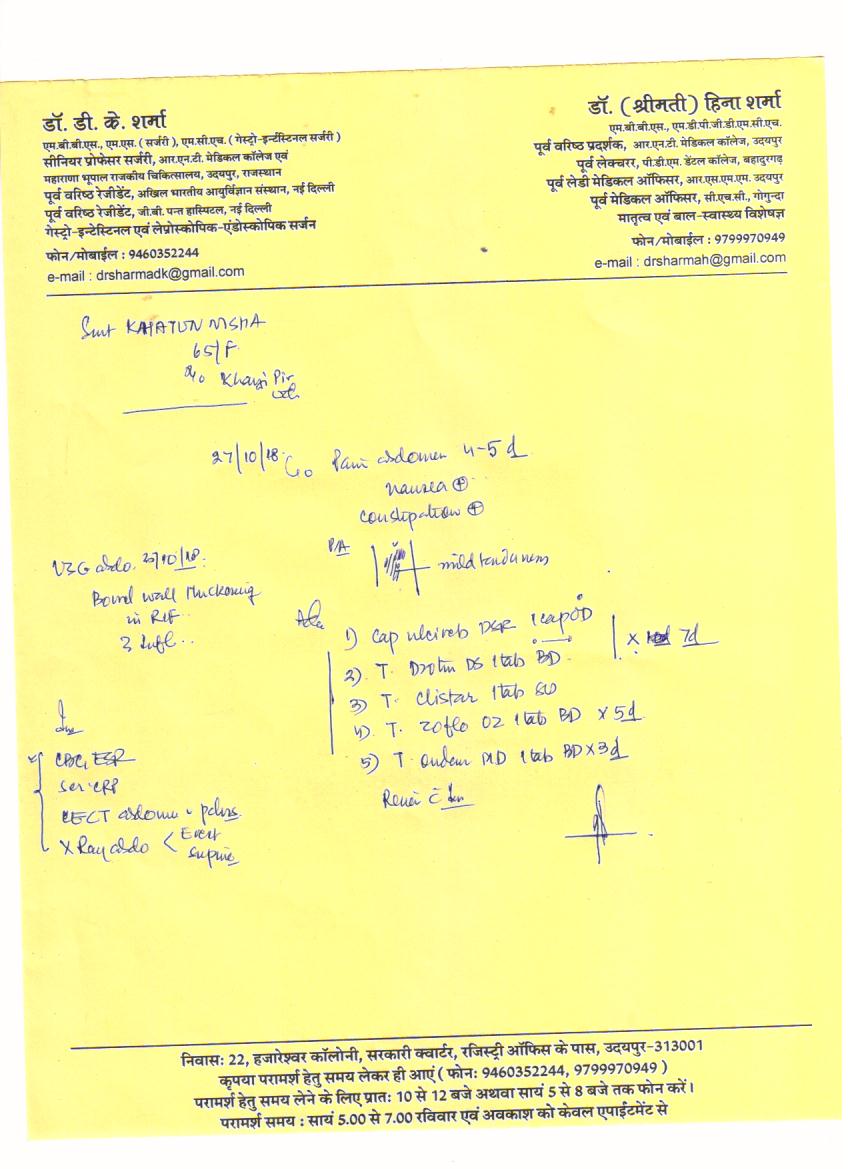 डॉ. डी. के. शर्मा
एम.बी.बी.एस., एम.एस. ( सर्जरी ), एम.सी.एच. ( गेस्ट्रो-इन्टेंस्टिनल सर्जरी )
सीनियर प्रोफेसर सर्जरी, आर.एन.टी. मेडिकल कॉलेज एवं
महाराणा भूपाल राजकीय चिकित्सालय, उदयपुर, राजस्थान
पूर्व वरिष्ठ रेजीडेंट, अखिल भारतीय आयुर्विज्ञान संस्थान, नई दिल्ली
पूर्व वरिष्ठ रेजीडेंट, जी.बी. पन्त हास्पिटल, नई दिल्ली
गेस्ट्रो-इन्टेस्टिनल एवं लेप्रोस्कोपिक-एंडोस्कोपिक सर्जन
फोन/मोबाईल : 9460352244
e-mail : drsharmadk@gmail.com
डॉ. (श्रीमती) हिना शर्मा
एम.बी.बी.एस., एम.डी.पी.जी.डी.एम.सी.एच.
पूर्व वरिष्ठ प्रदर्शक, आर.एन.टी. मेडिकल कॉलेज, उदयपुर
पूर्व लेक्चरर, पी.डी.एम. डेंटल कॉलेज, बहादुरगढ़
पूर्व लेडी मेडिकल ऑफिसर, आर.एस.एम.एम. उदयपुर
पूर्व मेडिकल ऑफिसर, सी.एच.सी., गोगुन्दा
मातृत्व एवं बाल-स्वास्थ्य विशेषज्ञ
फोन/मोबाईल : 9799970949
e-mail : drsharmah@gmail.com
Smt KHATUN NISHA
65/F
Khanji Pir
27/10/18 C/o Pain abdomen 4-5 d
nausea ⊕
constipation ⊕
P/A mild tenderness
USG abdo.
Bowel wall thickening
in RIF
Adv
1) Cap DSR 1 cap OD x 7d
2) T. Drotin DS 1 tab BD
3) T. Clistar 1 tab
4) T. Zoflo OZ 1 tab BD x 5d
5) T. 1 tab BD x 3d
CBC, ESR
Ser CRP
CECT abdomen + pelvis
X Ray abdo < Erect
supine
निवास: 22, हजारेश्वर कॉलोनी, सरकारी क्वार्टर, रजिस्ट्री ऑफिस के पास, उदयपुर-313001
कृपया परामर्श हेतु समय लेकर ही आएं ( फोन: 9460352244, 9799970949 )
परामर्श हेतु समय लेने के लिए प्रात: 10 से 12 बजे अथवा सायं 5 से 8 बजे तक फोन करें।
परामर्श समय : सायं 5.00 से 7.00 रविवार एवं अवकाश को केवल एपाईंटमेंट से